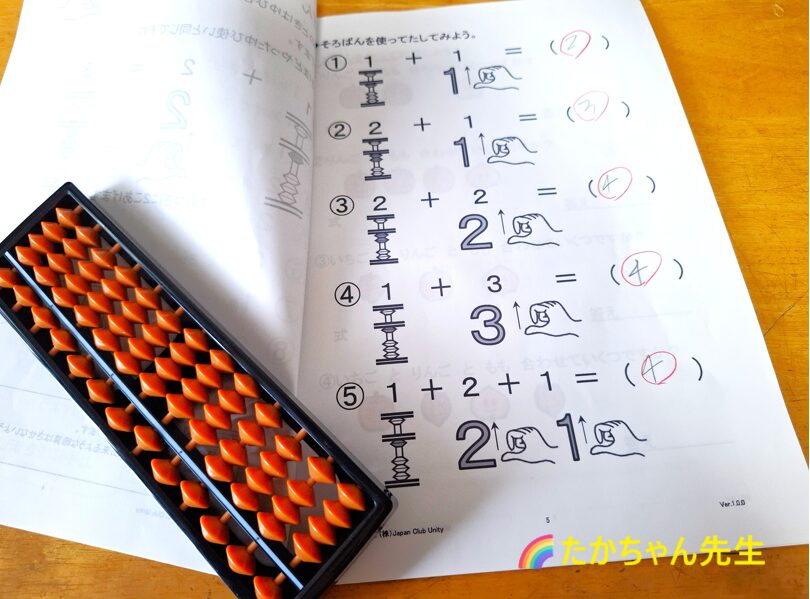 そろばんを使ってたしてみよう。
① 1 + 1 = ( 2 )
1
② 2 + 1 = ( 3 )
1
③ 2 + 2 = ( 4 )
2
④ 1 + 3 = ( 4 )
3
⑤ 1 + 2 + 1 = ( 4 )
2 1
Ver.1.0.0
5
(株)Japan Club Unity
たかちゃん先生